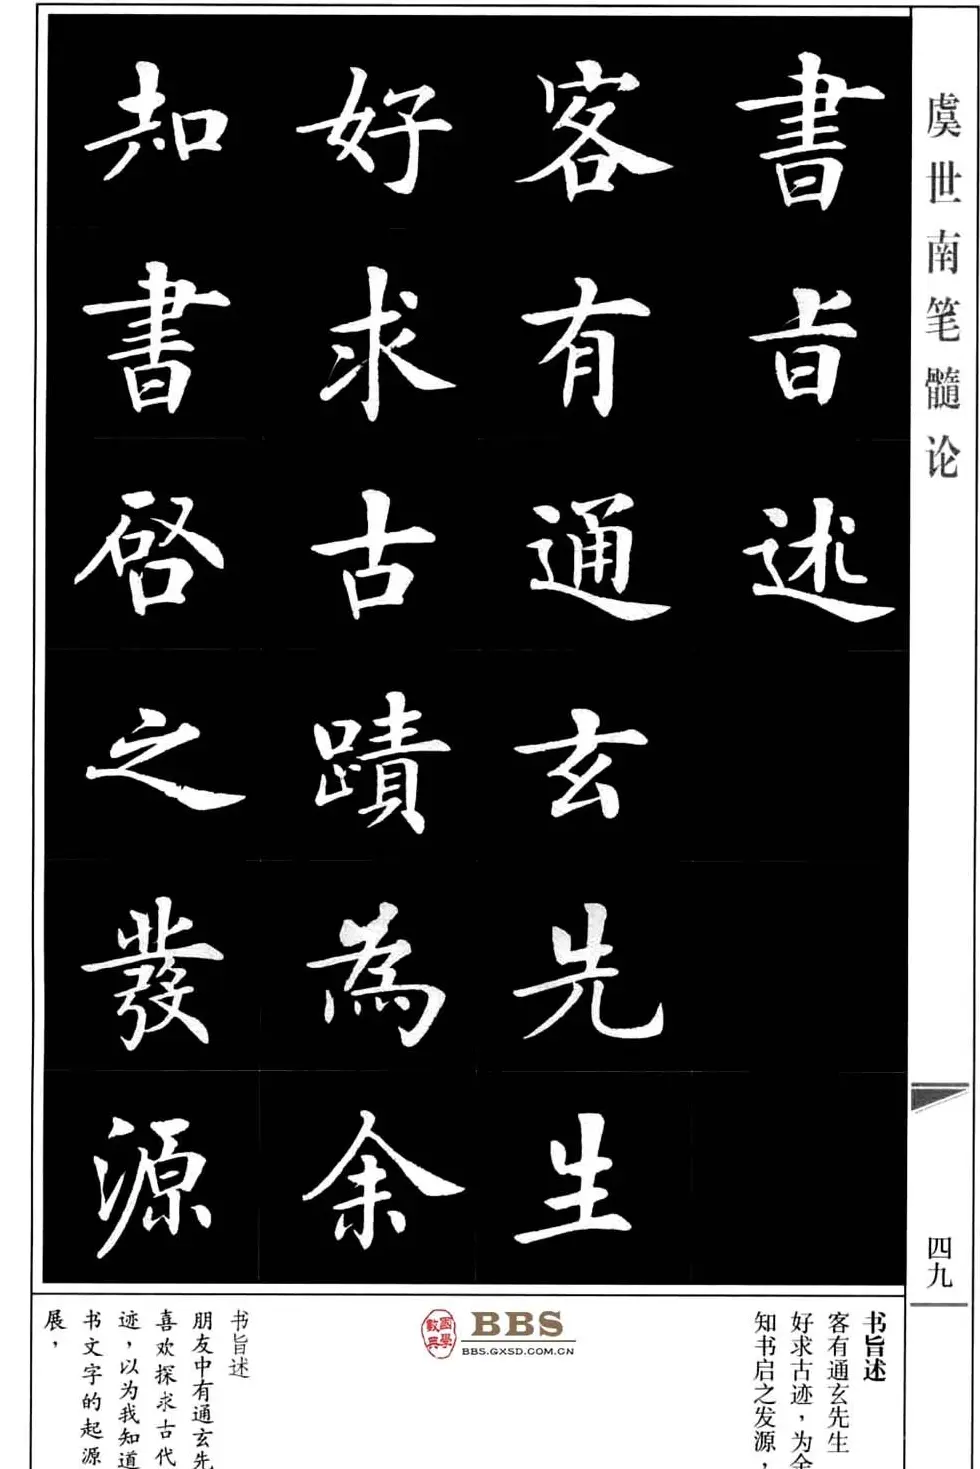 虞世南笔髓论
書旨述
客有通玄先生
好求古蹟為余
知書啓之發源
四九
书旨述
客有通玄先生
好求古迹，为余
知书启之发源，
國學數典
BBS
BBS.GXSD.COM.CN
书旨述
朋友中有通玄先
喜欢探求古代
迹，以为我知道
书文字的起源
展，